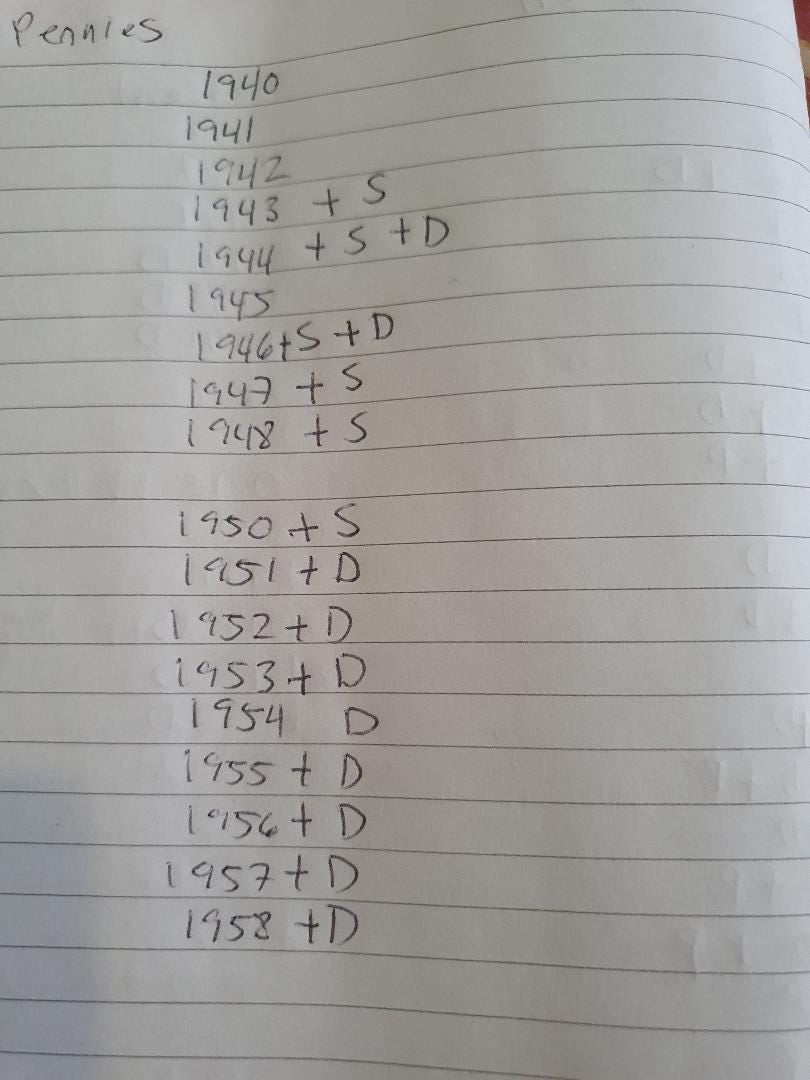 Pennies
1940
1941
1942
1943 + S
1944 + S + D
1945
1946 + S + D
1947 + S
1948 + S
1950 + S
1951 + D
1952 + D
1953 + D
1954 D
1955 + D
1956 + D
1957 + D
1958 + D